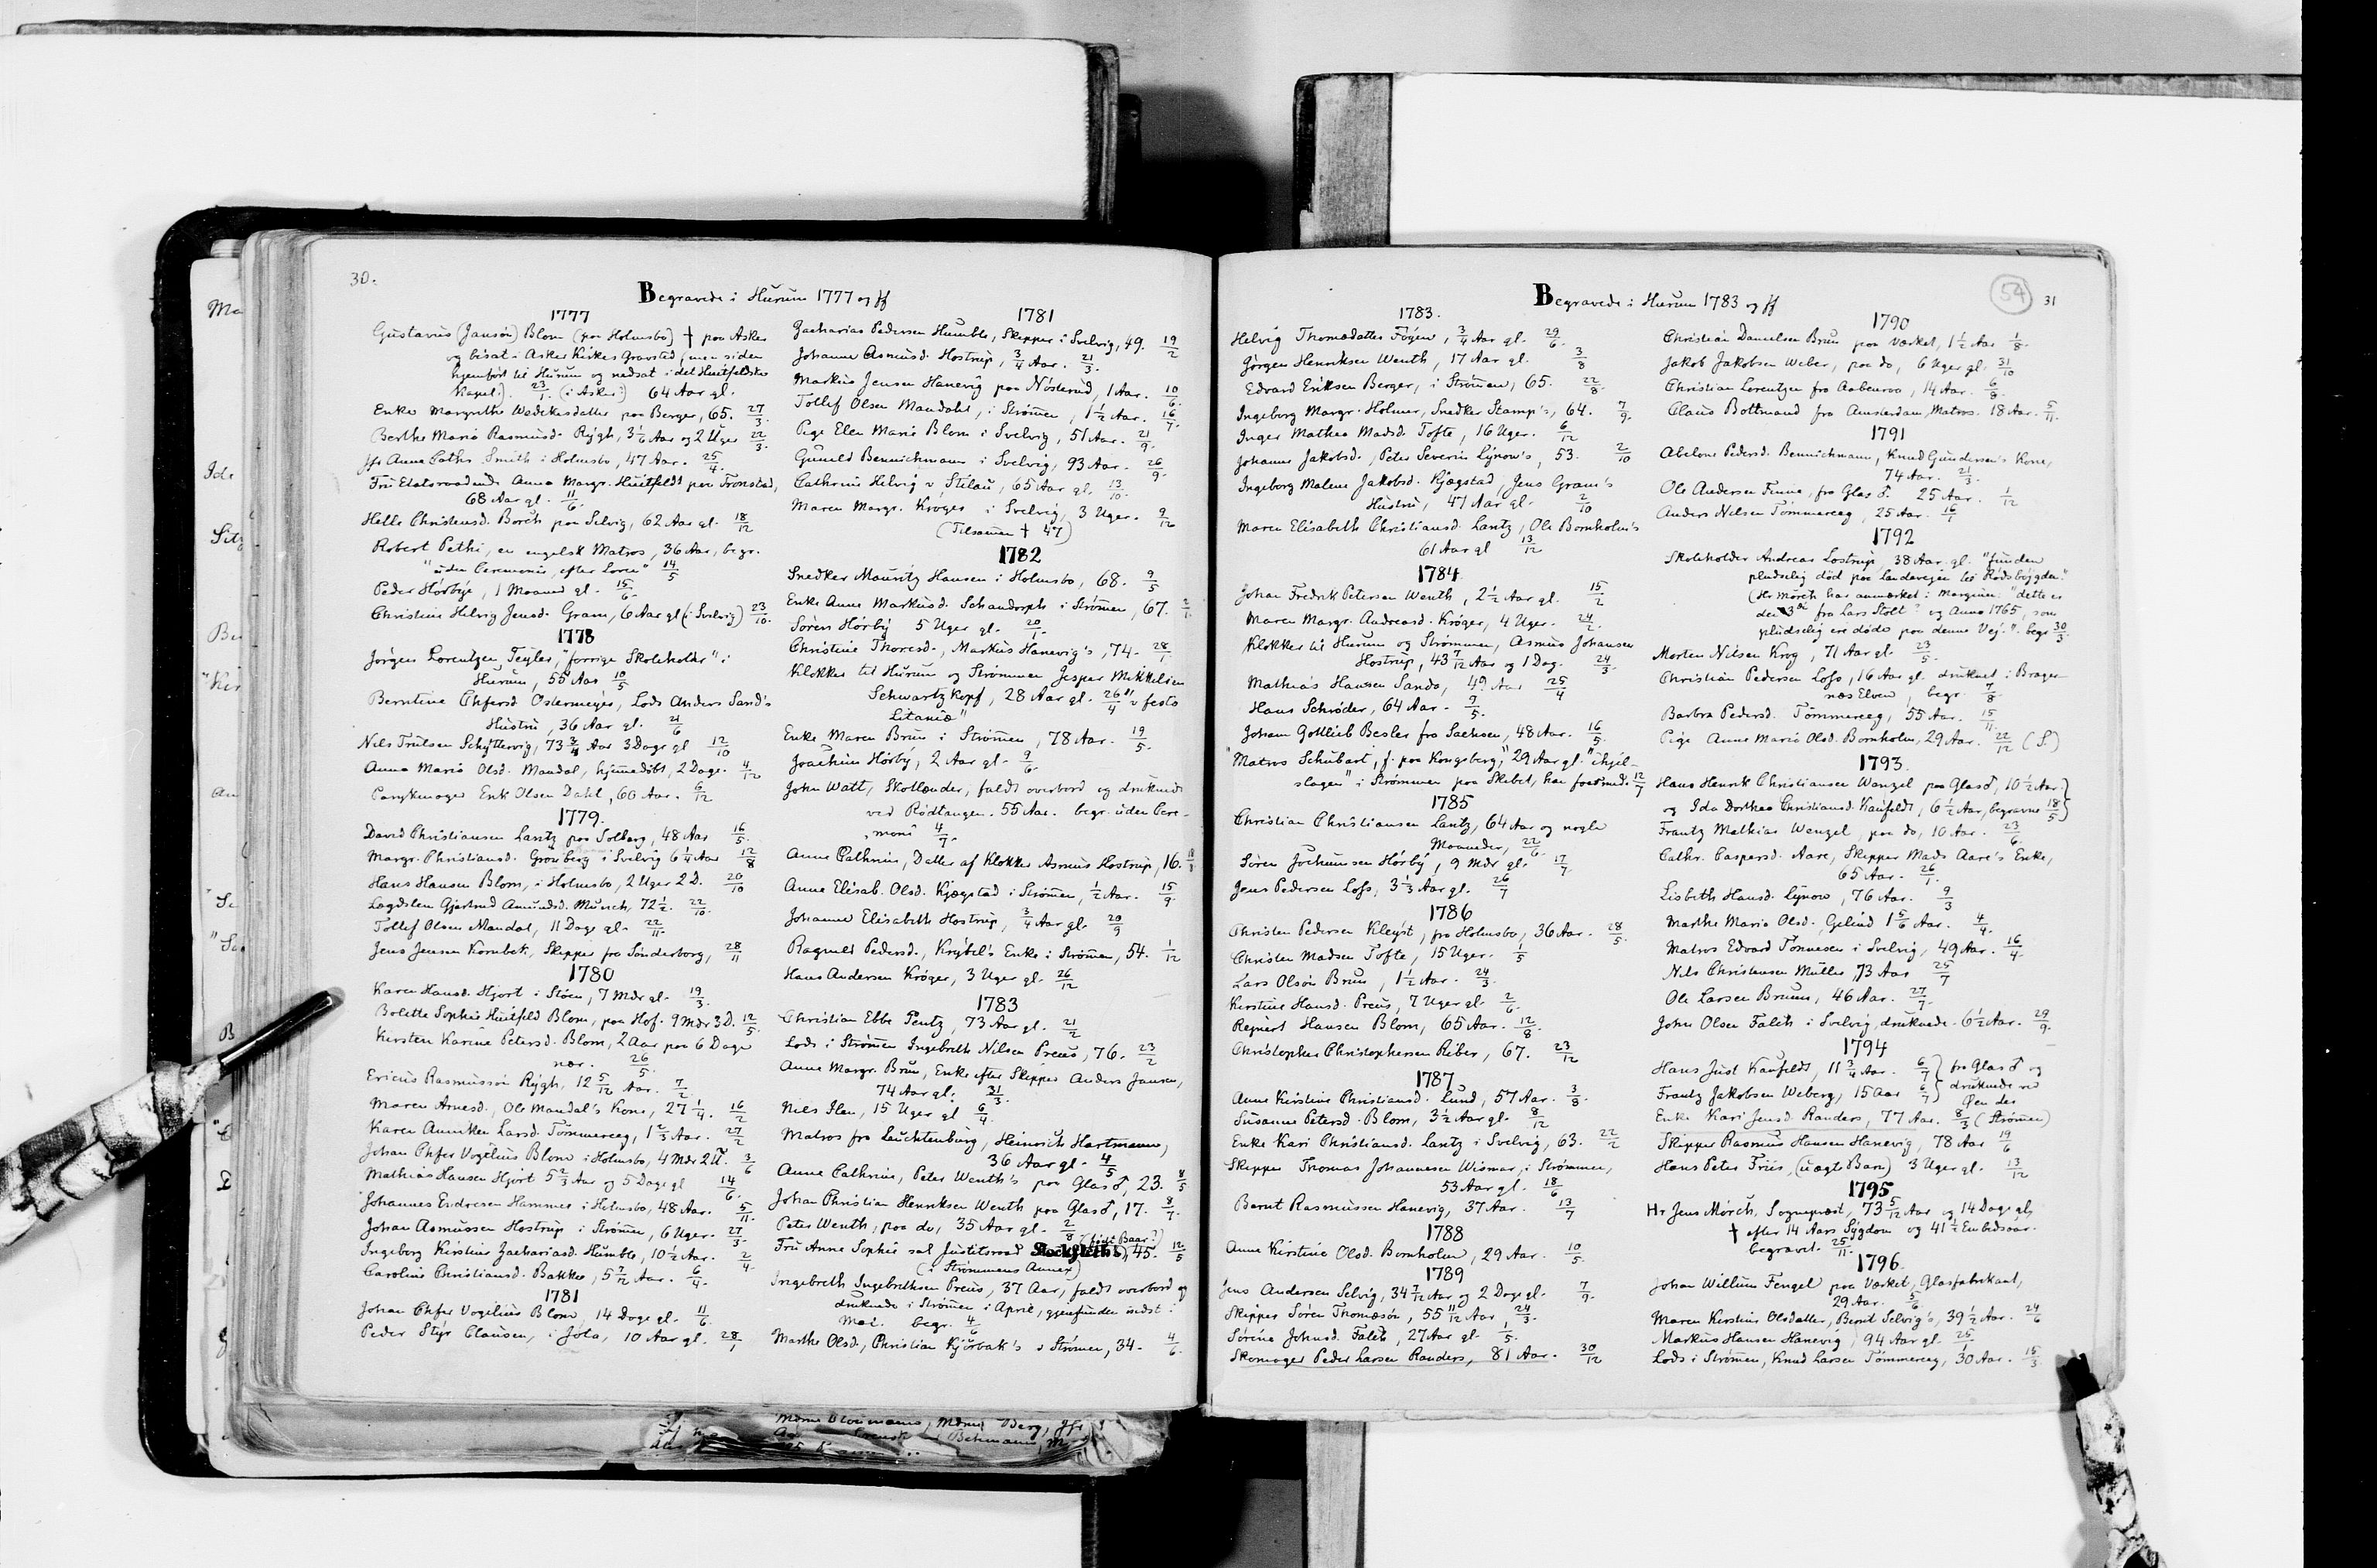 30.
Begravede i Hurum 1777 og ff
1777
Gustavus (Jansøn) Blom (paa Holmsbo) † paa Asker
og bisat i Asker Kirkes Gravsted, men siden
hjemført til Hurum og nedsat i det Huitfeldtske
Kapel). 23/1. (i Asker) 64 Aar gl.
Enke Margrethe Wedekesdatter paa Berger, 65. 27/3.
Berthe Maria Rasmusd. Rÿgh, 3 1/6 Aar og 2 Uger 22/3.
Jfr Anne Cathr. Smith i Holmsbo, 47 Aar. 25/4.
Fru Etatsraadinde Anna Margr. Huitfeldt paa Tronstad,
68 Aar gl. 11/6.
Helle Christensd. Borch paa Selvig, 62 Aar gl. 18/12
Robert Pethi, en engelsk Matros, 36 Aar, begr.
"uden Ceremonie, efter Loven" 14/5
Peder Hörbÿe, 1 Maaned gl. 15/6.
Christine Helvig Jensd. Gram, 6 Aar gl (i Svelvig) 23/10.
1778
Jörgen Lorentzen Teÿler, "forrige Skoleholder" i
Hurum, 55 Aar 10/5
Berntine Chfersd Ostermeÿer, Lods Anders Sand's
Hustru, 36 Aar gl. 21/6
Nils Trulsen Schÿttervig, 73 3/4 Aar 3 Dage gl 12/10
Anna Maria Olsd. Mandal, hjemmedöbt, 2 Dage. 4/12
Parykmager Erik Olsen Dahl, 60 Aar. 6/12
1779.
David Christiansen Lantz paa Solberg, 48 Aar 16/5.
Margr. Christiansd. Grönberg i Svelvig 6 1/4 Aar 12/8
Hans Hansen Blom, i Holmsbo, 2 Uger 2 D. 20/10
Lægdslem Gjertrud Amundsd. Munch, 72 1/2. 22/10.
Tollef Olsen Mandal, 11 Dage gl. 22/11.
Jens Jensen Kornbek, Skipper fra Sönderborg, 28/11
1780
Karen Hansd. Hjort i Støen, 7 Mdr gl. 19/3.
Bolette Sophie Huitfeld Blom, paa Hof. 9 Mdr 3 D. 12/5.
Kirsten Karine Petersd. Blom, 2 Aar paa 6 Dage
nær. 26/5
Ericus Rasmussøn Rÿgh, 12 5/12 Aar. 7/2.
Maren Arnesd., Ole Mandal's Kone, 27 1/4. 16/2
Karen Anniken Larsd. Tömmeraeg, 1 2/3 Aar. 27/2
Johan Chfer Vogelius Blom i Holmsbo, 4 Mdr 2 U. 3/6
Mathias Hansen Hjort 5 2/3 Aar og 5 Dage gl 14/6.
Johannes Endresen Hammer i Holmsbo, 48 Aar. 5/11.
Johan Asmussen Hostrup i Strömen, 6 Uger. 27/3.
Ingeborg Kirstine Zachariasd. Humble, 10 1/2 Aar. 2/4.
Caroline Christiansd. Bakke, 5 7/12 Aar. 6/4.
1781
Johan Chfer Vogelius Blom, 14 Dage gl. 11/6.
Peder Stÿr Clausen, i Jola, 10 Aar gl. 28/1
1781
Zacharias Pedersen Humble, Skipper i Svelvig, 49. 19/2
Johanne Asmusd. Hostrup, 3/4 Aar. 21/3.
Markus Jensen Hanevig paa Nösterud, 1 Aar. 10/6.
Tollef Olsen Mandahl, i Strömen, 1 1/2 Aar. 16/7.
Pige Elen Marie Blom i Svelvig, 51 Aar. 21/9.
Gunild Bennichmann i Svelvig, 93 Aar. 26/9.
Cathrine Helvig v Stilau, 65 Aar gl. 13/10.
Maren Margr. Kröger i Svelvig, 3 Uger. 9/12
(Tilsamen † 47)
1782
Snedker Mauritz Hansen i Holmsbo, 68. 9/5
Enke Anne Markusd. Schandorph i Strömen, 67. 2/1.
Sören Hörbÿ 5 Uger gl. 20/1.
Christine Thoresd., Markus Hanevig's, 74. 28/1
Klokker til Hurum og Strömmen Jesper Mikkelsen
Schwartzkopf, 28 Aar gl. 26/4 "v festo
Litaniæ"
Enke Maren Brun i Strömen, 78 Aar. 19/5.
Joachim Hörbÿ, 2 Aar gl. 9/6.
John Watt, Skotlænder, faldt overbord og druknede
ved Rödtangen. 55 Aar. begr. uden Cere-
moni 4/7.
Anne Cathrine, Datter af Klokker Asmus Hostrup, 16.
Anne Elisab. Olsd. Kjægstad i Strömen, 1/2 Aar. 15/9.
Johanne Elisabeth Hostrup, 3/4 Aar gl. 20/9
Ragnild Pedersd., Krÿbel's Enke i Strömen, 54. 1/12
Hans Andersen Kröger, 3 Uger gl. 26/12
1783
Christian Ebbe Pentz, 73 Aar gl. 21/2
Lods i Strömen Ingebreth Nilsen Preus, 76. 23/2
Anne Margr. Brun, Enke efter Skipper Anders Jansen,
74 Aar gl. 21/3.
Nils Ilen, 15 Uger gl 6/4.
Matros fra Luchtenburg, Heinrich Hartmann,
36 Aar gl. 4/5
Anne Cathrine, Peter Wenth's paa Glas♂, 23. 8/5
Johan Christian Henriksen Wenth paa Glas♂, 17. 8/7.
Peter Wenth, paa do, 35 Aar gl. 2/8
(född Baar?)
Fru Anne Sophie sal Justitsraad Stockfleths, 45. 12/5
(i Strömmens Annex)
Ingebreth Ingebrethsen Preus, 37 Aar, faldt overbord og
druknede i Strömen i April, gjenfunden indst i
Mai. begr. 4/6
Marthe Olsd., Christian Kjörbak's i Strömen, 34. 4/6.
54
31
Begravede i Hurum 1783 og ff
1783.
Helvig Thomædatter Föÿen, 3/4 Aar gl. 29/6.
Jörgen Henriksen Wenth, 17 Aar gl. 3/8
Edvard Eriksen Berger, i Strömen, 65. 22/8.
Ingeborg Margr. Holmer, Snedker Stamp's, 64. 7/9.
Inger Mathea Madsd. Tofte, 16 Uger. 6/12
Johanne Jakobsd., Peter Severin Lÿnow's, 53. 2/10
Ingeborg Malene Jakobsd. Kjægstad, Jens Gram's
Hustru, 47 Aar gl. 2/10
Maren Elisabeth Christiansd. Lantz, Ole Bornholm's
61 Aar gl 13/12
1784.
Johan Fredrik Petersen Wenth, 2 1/2 Aar gl. 15/2
Maren Margr. Andreasd. Kröger, 4 Uger. 24/2.
Klokker til Hurum og Strömmen, Asmus Johansen
Hostrup, 43 7/12 Aar og 1 Dag. 24/3.
Mathias Hansen Sando, 49 Aar 25/4
Hans Schröder, 64 Aar. 9/5.
Johan Gottlieb Besler fra Sachsen, 48 Aar. 16/5.
"Matros Schubart, f. paa Kongsberg," 29 Aar gl. "ihjel-
slagen" i Strömmen paa Skibet, han foer med. 12/7
1785
Christian Christiansen Lantz, 64 Aar og nogle
Maaneder, 22/6.
Sören Jochumsen Hörbÿ, 9 Mdr gl. 17/7.
Jens Pedersen Lofs, 3 1/3 Aar gl. 26/7
1786
Christen Pedersen Kleÿst, fra Holmsbo, 36 Aar. 28/5.
Christen Madsen Tofte, 15 Uger. 1/5
Lars Olsøn Brun, 1 1/2 Aar. 24/3.
Kirstine Hansd. Preus, 7 Uger gl. 2/6.
Reinert Hansen Blom, 65 Aar. 12/8.
Christopher Christophersen Riber, 67. 23/12
1787
Anne Kirstine Christiansd. Lund, 57 Aar. 3/8.
Susanne Petersd. Blom, 3 1/2 Aar gl. 8/12
Enke Kari Christiansd. Lantz i Svelvig, 63. 22/2
Skipper Thomas Johannesen Wismar, i Strömmen,
53 Aar gl. 18/6
Bernt Rasmussen Hanevig, 37 Aar. 13/7
1788
Anne Kirstine Olsd. Bornholm, 29 Aar. 10/5.
1789
Jens Andersen Selvig, 34 7/12 Aar og 2 Dage gl. 7/9.
Skipper Sören Thomæsøn, 55 11/12 Aar 24/3.
Sörine Johnsd. Falch, 27 Aar gl 1/5.
Skomager Peder Larsen Randers, 81 Aar. 30/12
1790
Christian Danielsen Brun paa Værket, 1 1/2 Aar 1/8.
Jakob Jakobsen Weber, paa do, 6 Uger gl. 31/10
Christian Lorentzen fra Aabenraa, 14 Aar. 6/8.
Claus Bottmand fra Amsterdam, Matros. 18 Aar. 5/11.
1791
Abelone Pedersd. Bennichmann, Knud Gundersen's Kone,
74 Aar. 21/3.
Ole Andersen Finne, fra Glas♂. 25 Aar. 1/12
Anders Nilsen Tömmeraeg, 25 Aar. 16/1
1792
Skoleholder Andreas Lostrup, 38 Aar gl. "funden
pludselig död paa Landeveien til Rödsbÿgden."
(Hr Mörch har anmærket i Marginen: "dette er
den 3die fra Lars Stolt og Anno 1765, som
pludselig ere döde paa denne Vej." begr 30/3.
Morten Nilsen Krog, 71 Aar gl. 23/5.
Christian Pedersen Lofs, 16 Aar gl. druknet i Brager-
næs Elven, begr. 7/8.
Barbra Pedersd. Tömmeraeg, 55 Aar. 15/11.
Pige Anne Marie Olsd. Bornholm, 29 Aar. 22/12 (S.)
1793.
Hans Henrik Christiansen Wenzel paa Glas♂, 10 1/2 Aar.
og Ida Dorthea Christiansd. Kaufeldt, 6 1/2 Aar, begravne 18/5
Frantz Mathias Wenzel, paa do, 10 Aar. 23/6
Cathr. Caspersd. Aare, Skipper Mads Aare's Enke,
65 Aar. 26/1.
Lisbeth Hansd. Lÿnow, 76 Aar. 9/3
Marthe Maria Olsd. Gelind 1 5/6 Aar. 4/4.
Matros Edvard Tönnesen i Svelvig, 49 Aar. 16/4.
Nils Christensen Müller, 73 Aar 25/7
Ole Larsen Bruun, 46 Aar. 27/7.
John Olsen Falch i Svelvig, druknede. 6 1/2 Aar. 29/9.
1794
Hans Just Kaufeldt, 11 3/4 Aar. 6/7 } fra Glas♂ og
Frantz Jakobsen Weberg, 15 Aar 6/7 } druknede ved
Øen der
Enke Kari Jensd. Randers, 77 Aar. 8/3 (Strömen)
Skipper Rasmus Hansen Hanevig, 78 Aar 19/6
Hans Peter Friis, (uægte Barn) 3 Uger gl. 13/12
1795
Hr Jens Mörch, Sognepræst, 73 5/12 Aar og 14 Dage gl,
† efter 14 Aars Sÿgdom og 41 1/2 Embedsaar.
begravet. 25/11.
1796.
Johan Willum Fengel paa Værket, Glasfabrikant,
29 Aar. 5/6
Maren Kirstine Olsdatter, Bernt Selvig's, 39 1/2 Aar. 24/6
Markus Hansen Hanevig, 94 Aar gl. 25/1
Lods i Strömen, Knud Larsen Tömmeraeg, 30 Aar. 15/3